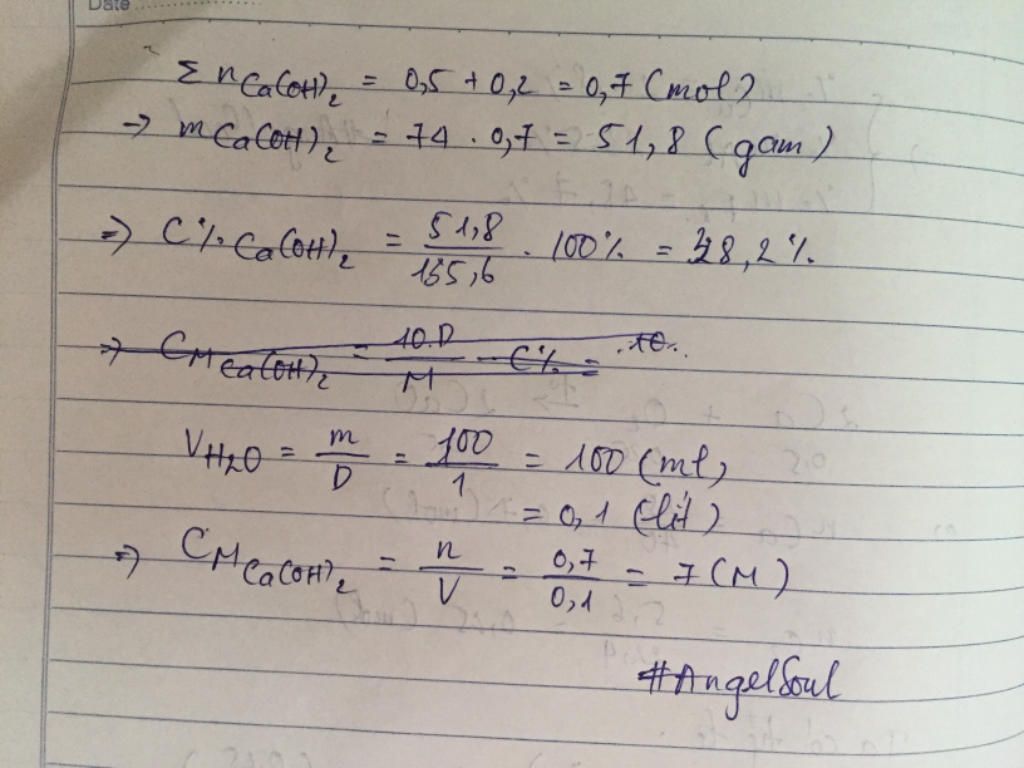 Date
Σ n Ca(OH)₂ = 0,5 + 0,2 = 0,7 (mol)
→ m Ca(OH)₂ = 74 . 0,7 = 51,8 (gam)
=> C% Ca(OH)₂ = 51,8 / 135,6 . 100% = 38,2%
=> CM Ca(OH)₂ = 10.D / M . C% = 10
V H2O = m / D = 100 / 1 = 100 (ml)
= 0,1 (lít)
=> CM Ca(OH)₂ = n / V = 0,7 / 0,1 = 7 (M)
#AngelSoul